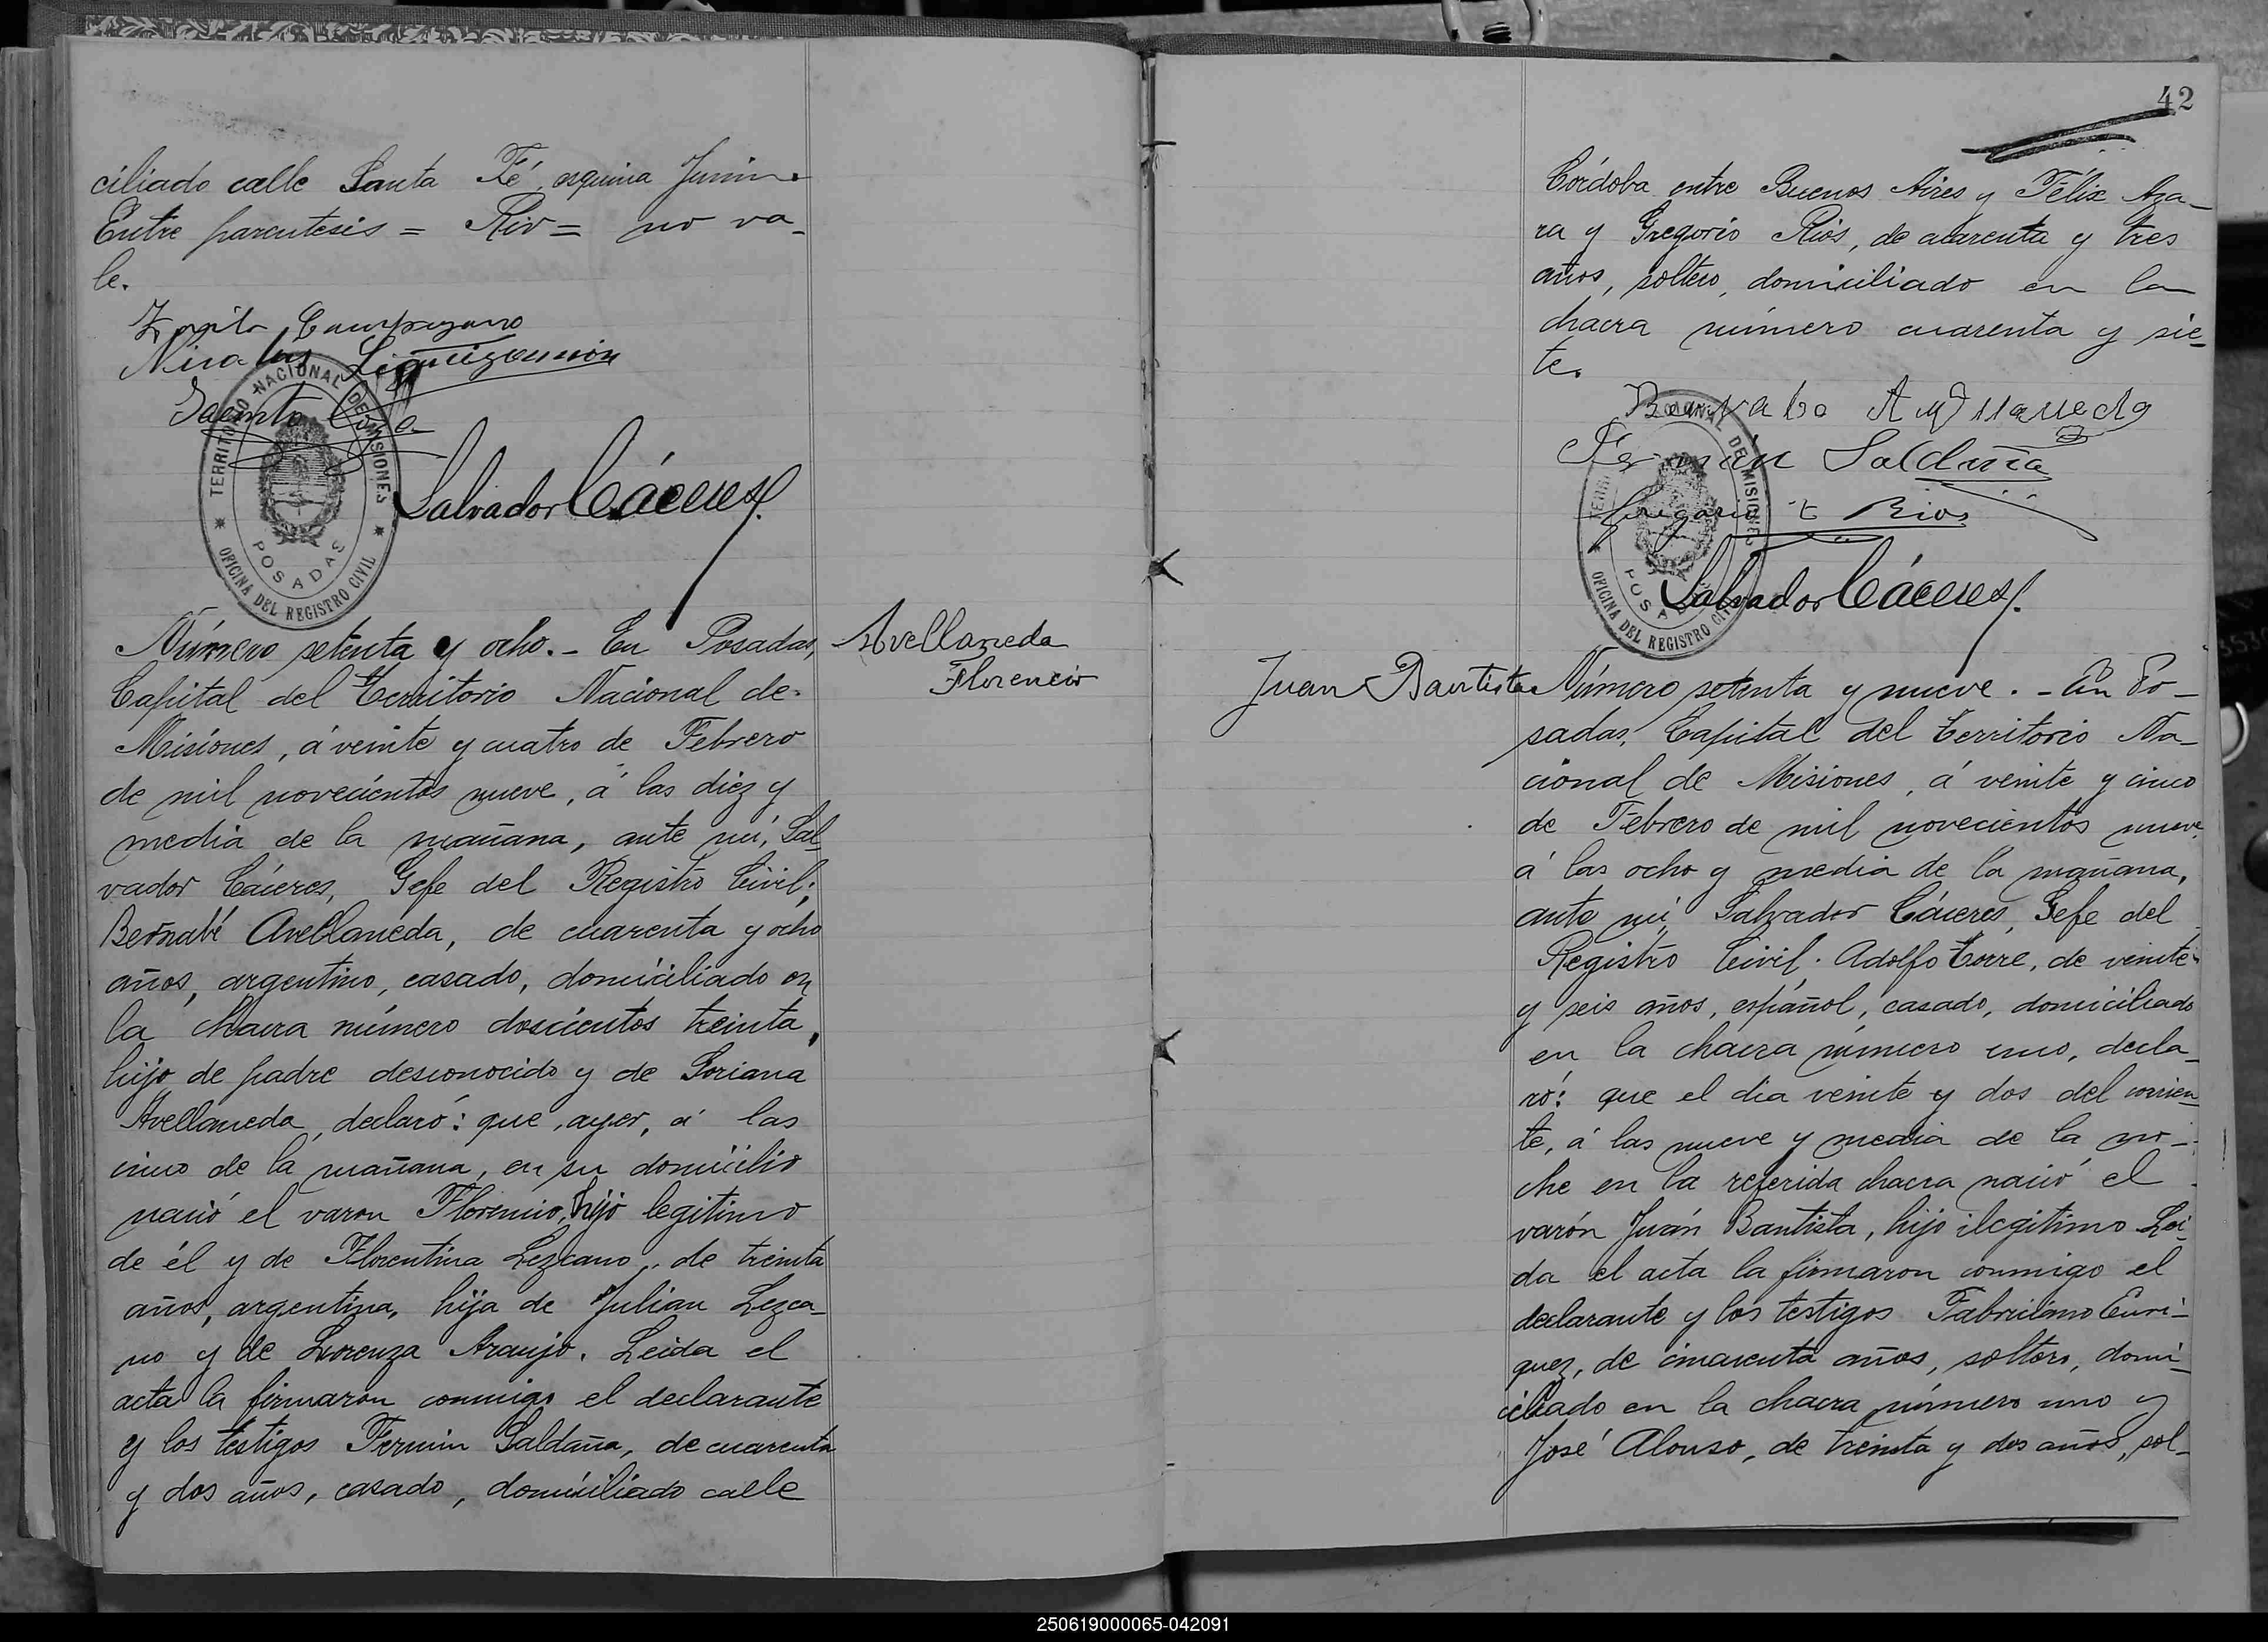 ciliado calle Santa Fé, esquina Junin.
Entre parentesis = Rio = no va-
le.
Nicolas
Jacinto
TERRITORIO NACIONAL DE MISIONES
POSADAS
OFICINA DEL REGISTRO CIVIL
Salvador Cáceres
Número setenta y ocho.- En Posadas,
Capital del Territorio Nacional de
Misiones, á veinte y cuatro de Febrero
de mil novecientos nueve, á las diez y
media de la mañana, ante mí, Sal-
vador Cáceres, Gefe del Registro Civil;
Bernabé Avellaneda, de cuarenta y ocho
años, argentino, casado, domiciliado en
la chacra número doscientos treinta,
hijo de padre desconocido y de Soriana
Avellaneda, declaró: que, ayer, á las
cinco de la mañana, en su domicilio
nació el varon Florencio, hijo legitimo
de él y de Florentina Lezcano, de treinta
años, argentina, hija de Julian Lezca-
no y de Lorenza Araujo. Leida el
acta la firmaron conmigo el declarante
y los testigos Fermin Saldaña, de cuarenta
y dos años, casado, domiciliado calle
Avellaneda
Florencio
42
Córdoba entre Buenos Aires y Félix Aza-
ra y Gregorio Rios, de cuarenta y tres
años, soltero, domiciliado en la
chacra número cuarenta y sie-
te.
Fermin Saldaña
Gregorio Rios
TERRITORIO NACIONAL DE MISIONES
POSADAS
OFICINA DEL REGISTRO CIVIL
Salvador Cáceres
Juan Bautista
Número setenta y nueve. - En Po-
sadas, Capital del Territorio Na-
cional de Misiones, á veinte y cinco
de Febrero de mil novecientos nueve
á las ocho y media de la mañana,
ante mí, Salvador Cáceres, Gefe del
Registro Civil. Adolfo Torre, de veinte
y seis años, español, casado, domiciliado
en la chacra número uno, decla-
ró: que el dia veinte y dos del corrien-
te, á las nueve y media de la no-
che en la referida chacra nació el
varón Juán Bautista, hijo ilegitimo Lei-
da el acta la firmaron conmigo el
declarante y los testigos Fabriciano Enri-
quez, de cincuenta años, soltero, domi-
ciliado en la chacra número uno y
José Alonso, de treinta y dos años, sol-
250619000065-042091